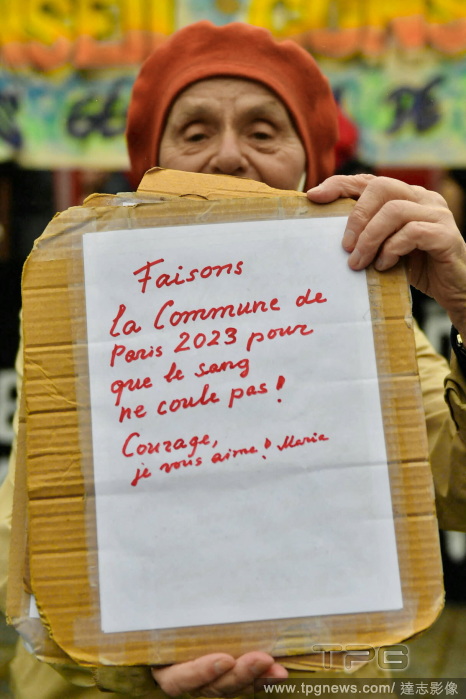 Faisons
la Commune de
Paris 2023 pour
que le sang
ne coule pas!
Courage,
je vous aime! Maria
TPG
www.tpgnews.com/達志影像